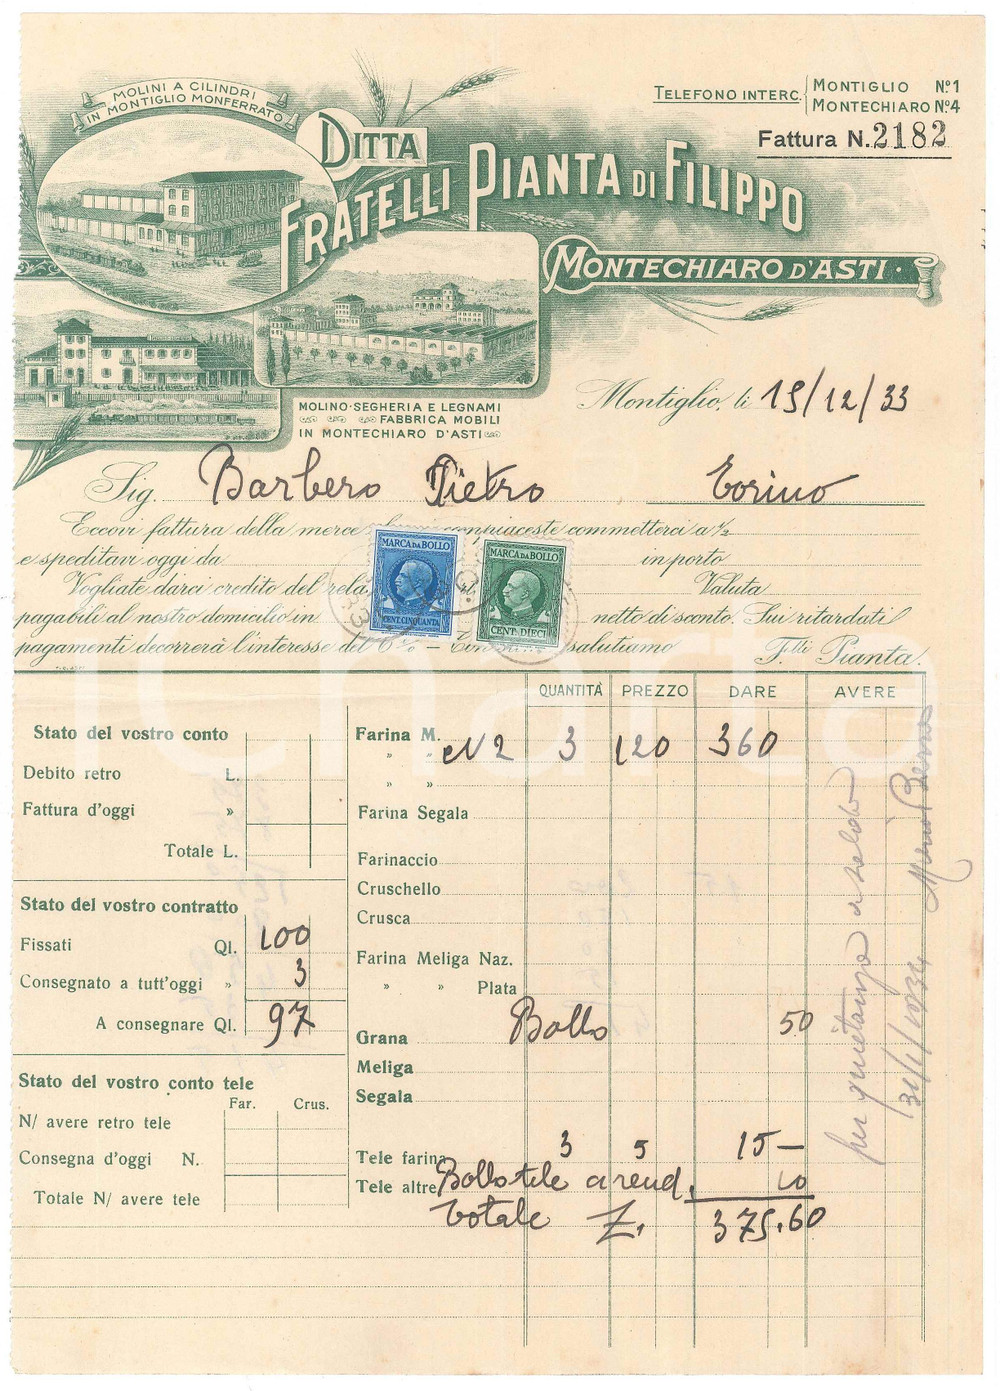 MOLINI A CILINDRI
IN MONTIGLIO MONFERRATO
TELEFONO INTERC. MONTIGLIO Nº1
MONTECHIARO Nº4
Fattura N. 2182
DITTA
FRATELLI PIANTA DI FILIPPO
MONTECHIARO D'ASTI
MOLINO-SEGHERIA E LEGNAMI
FABBRICA MOBILI
IN MONTECHIARO D'ASTI
Montiglio, li 15/12/33
Sig. Barbero Pietro Torino
Eccovi fattura della merce compiaceste commetterci a
e speditavi oggi da in porto
Vogliate darci credito del rela Valuta
pagabili al nostro domicilio in netto di sconto. Sui ritardati
pagamenti decorrerà l'interesse del 6% salutiamo F.lli Pianta.
MARCA DA BOLLO
CENT. CINQUANTA
MARCA DA BOLLO
CENT. DIECI
QUANTITÀ PREZZO DARE AVERE
Stato del vostro conto
Debito retro L.
Fattura d'oggi »
Totale L.
Stato del vostro contratto
Fissati Ql. 100
Consegnato a tutt'oggi » 3
A consegnare Ql. 97
Stato del vostro conto tele
Far. Crus.
N/ avere retro tele
Consegna d'oggi N.
Totale N/ avere tele
Farina M.
» » N 2 3 120 360
» »
Farina Segala
Farinaccio
Cruschello
Crusca
Farina Meliga Naz.
» » Plata
Grana Bollo 50
Meliga
Segala
Tele farina 3 5 15 —
Tele altre Bollo tele a rend. 10
Totale L. 375.60
per quietanza a saldo
31/1/1934